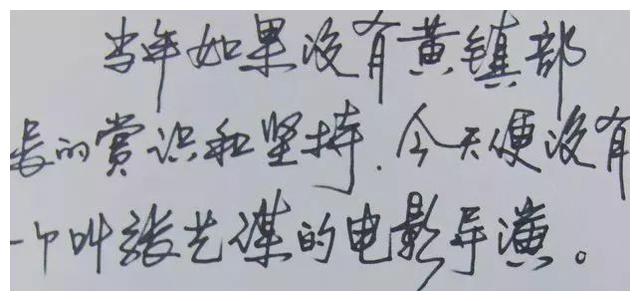 当年如果没有黄镇部
长的赏识和坚持.今天便没有
一个叫张艺谋的电影导演。